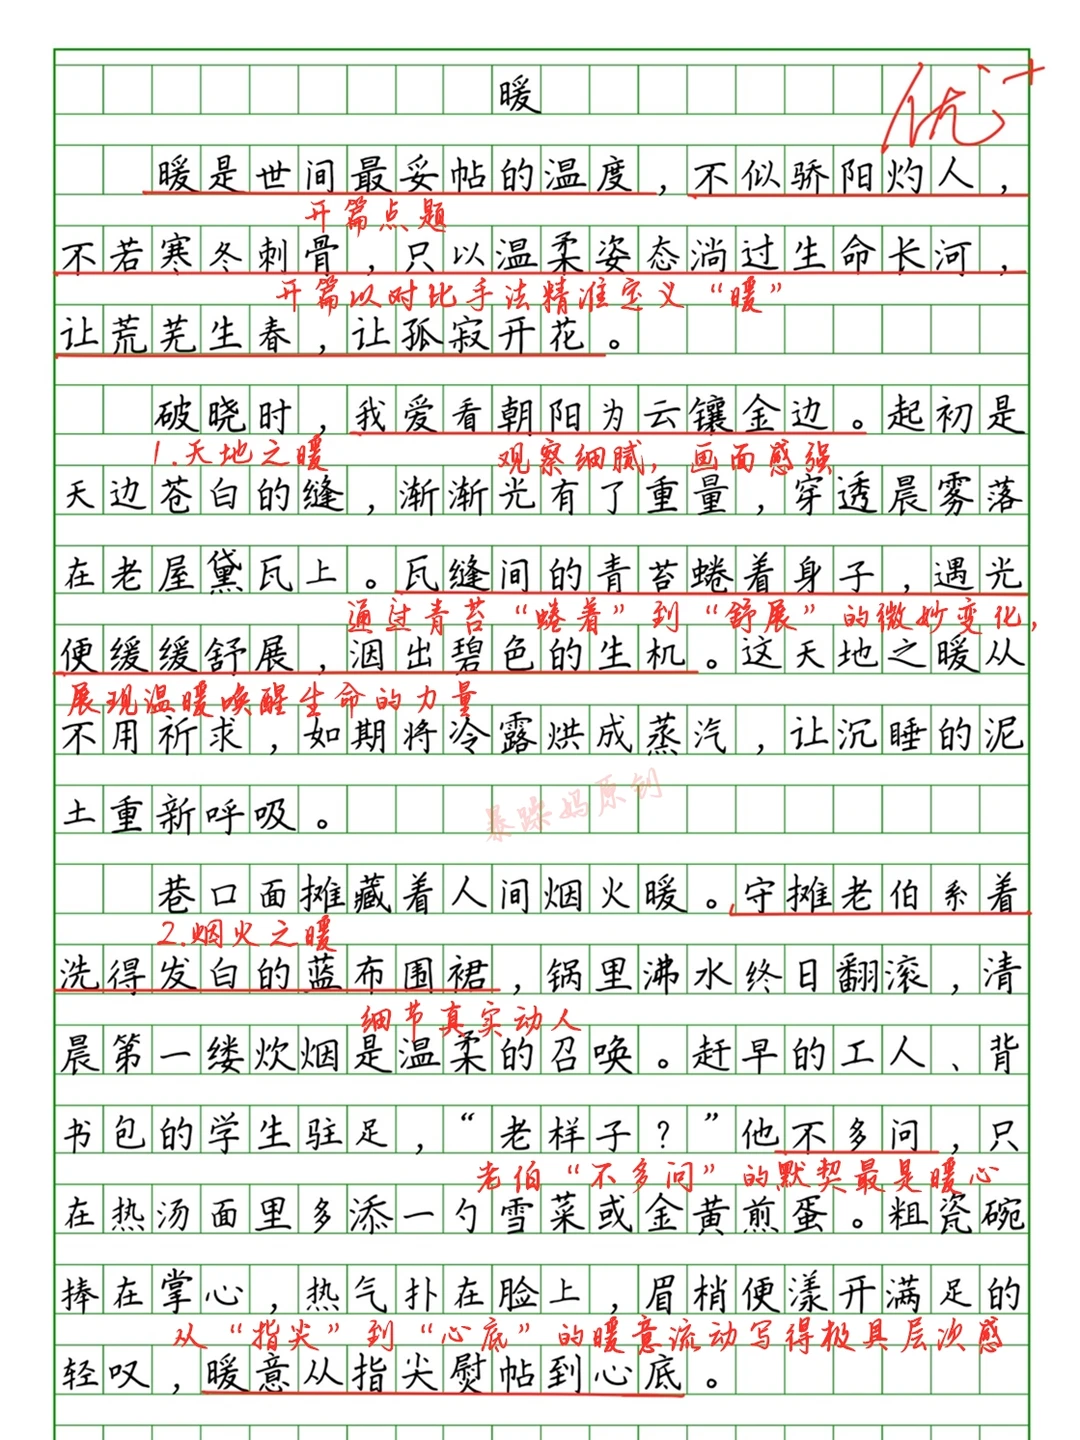 暖
优+
暖是世间最妥帖的温度，不似骄阳灼人，
开篇点题
不若寒冬刺骨，只以温柔姿态淌过生命长河，
开篇以对比手法精准定义“暖”
让荒芜生春，让孤寂开花。
破晓时，我爱看朝阳为云镶金边。起初是
1.天地之暖 观察细腻，画面感强
天边苍白的缝，渐渐光有了重量，穿透晨雾落
在老屋黛瓦上。瓦缝间的青苔蜷着身子，遇光
通过青苔“蜷着”到“舒展”的微妙变化，
便缓缓舒展，洇出碧色的生机。这天地之暖从
展现温暖唤醒生命的力量
不用祈求，如期将冷露烘成蒸汽，让沉睡的泥
土重新呼吸。
暴躁妈原创
巷口面摊藏着人间烟火暖。守摊老伯系着
2.烟火之暖
洗得发白的蓝布围裙，锅里沸水终日翻滚，清
细节真实动人
晨第一缕炊烟是温柔的召唤。赶早的工人、背
书包的学生驻足，“老样子？”他不多问，只
老伯“不多问”的默契最是暖心
在热汤面里多添一勺雪菜或金黄煎蛋。粗瓷碗
捧在掌心，热气扑在脸上，眉梢便漾开满足的
从“指尖”到“心底”的暖意流动写得极具层次感
轻叹，暖意从指尖熨帖到心底。